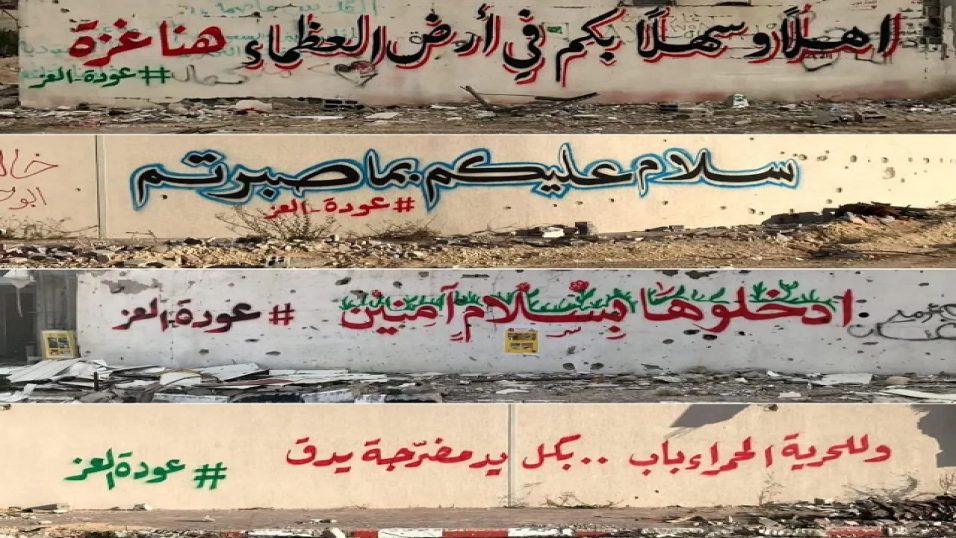 اهلًا وسهلًا بكم في أرض العظماء هنا غزة
#عودة_العز
سلام عليكم بما صبرتم
#عودة_العز
ادخلوها بسَلامٍ آمِنين
#عودة_العز
وللحرية الحمراء باب .. بكل يد مضرّجة يدق
#عودة العز